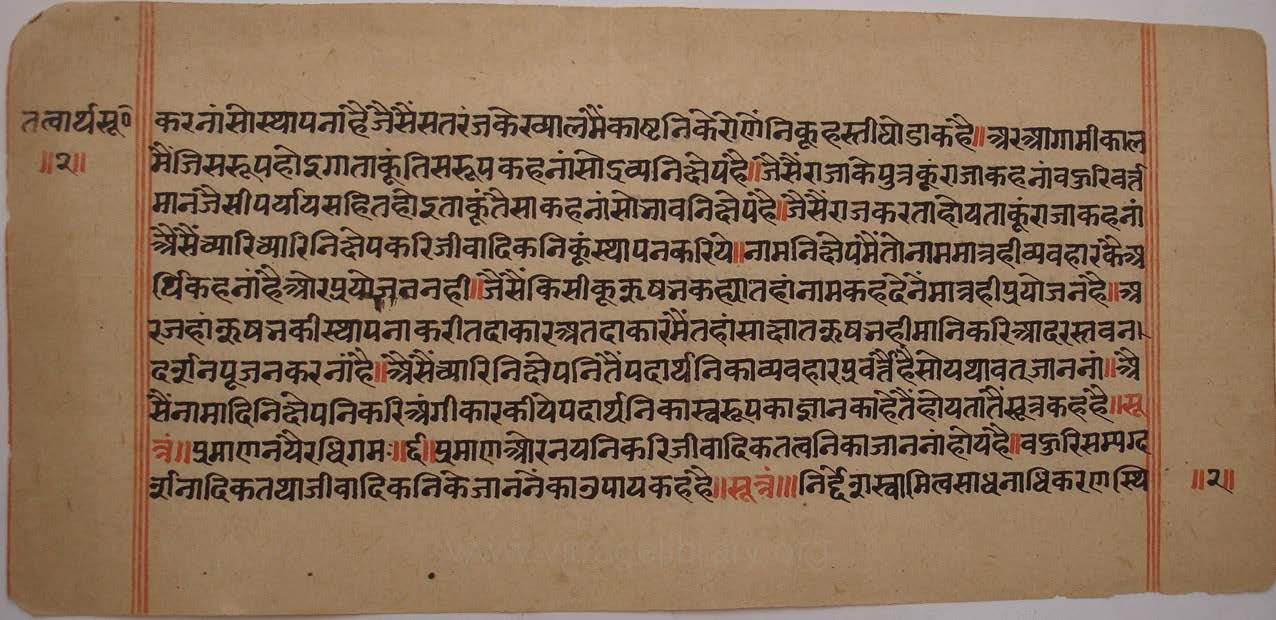 तत्वार्थसू॰
॥२॥
करनांसोस्थापनांहैजैसैंसतरंजकेख्यालमैंकाष्टनिकेगोणेनिकूहस्तीघोडाकहै॥अरआगामीकाल
मैंजिससरूपहोऽगाताकूंतिससरूपकहनांसोद्रव्यनिक्षेपहै॥जैसैंराजाकेपुत्रकूंराजाकहनांवऊरिवर्त्त
मानजैसीपर्यायसहितहोऽताकूंतैसाकहनांसोभावनिक्षेपहै॥जैसैंराजकरताहोयताकूंराजाकहनां
अैसैंच्यारिच्यारिनिक्षेपकरिजीवादिकनिकूंस्थापनकरिये॥नामनिक्षेपमैंतोनाममात्रहीव्यवहारकैअ
र्थिकहनांहैओरप्रयोजननही॥जैसैंकिसीकूऋषभकह्यातहांनामकहदेनेंमात्रहीप्रयोजनहै॥अ
रजहांऋषभकीस्थापनाकरीतदाकारअतदाकारमैंतहांसाक्षातऋषभहीमानिकरिआदरस्तवना
दर्शनपूजनकरनांहै॥अैसैंच्यारिनिक्षेपनितैंपदार्थनिकाव्यवहारप्रवर्त्तैहैसोयथावत्जाननां॥अै
सैंनामादिनिक्षेपनिकरिअंगीकारकीयेपदार्थनिकास्वरूपकाज्ञानकाहेतैंहोयतातैंसूत्रकहैहै॥सू
त्रं॥प्रमाणनयैरधिगमः॥६॥प्रमाणओरनयनिकरिजीवादिकतत्वनिकाजाननांहोयहै॥वऊरिसम्यग्द
र्शनादिकतथाजीवादिकनिकेजाननेंकाउपायकहैहै॥सूत्रं॥॥निर्द्देशस्वामित्वसाधनाधिकरणस्थि
॥२॥
www.vitragelibrary.org